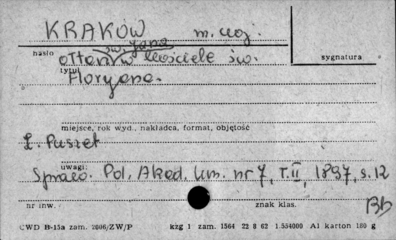 KRAKÓW m. woj.
św. Jana
hasło ołtarz w kościele św. sygnatura
tytuł Floryana.
miejsce, rok wyd., nakładca, format, objętość
L. Puszet
uwagi
Spraw. Pol. Akad. Um. nr 7, T. II, 1897, s. 12
nr inw. znak klas. BB
CWD B-15a zam. 2006/ZW/P kzg 1 zam. 1564 22 8 62 1.554000 A1 karton 180 g